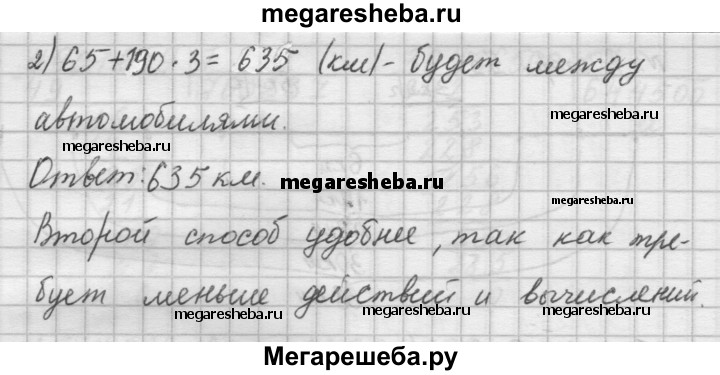 megaresheba.ru
2) 65+190·3= 635 (км)- будет между
автомобилями.
megaresheba.ru
megaresheba.ru
Ответ: 635 км.
megaresheba.ru
Второй способ удобнее, так как тре-
бует меньше действий и вычислений.
megaresheba.ru
megaresheba.ru
megaresheba.ru
Мегарешеба.ру